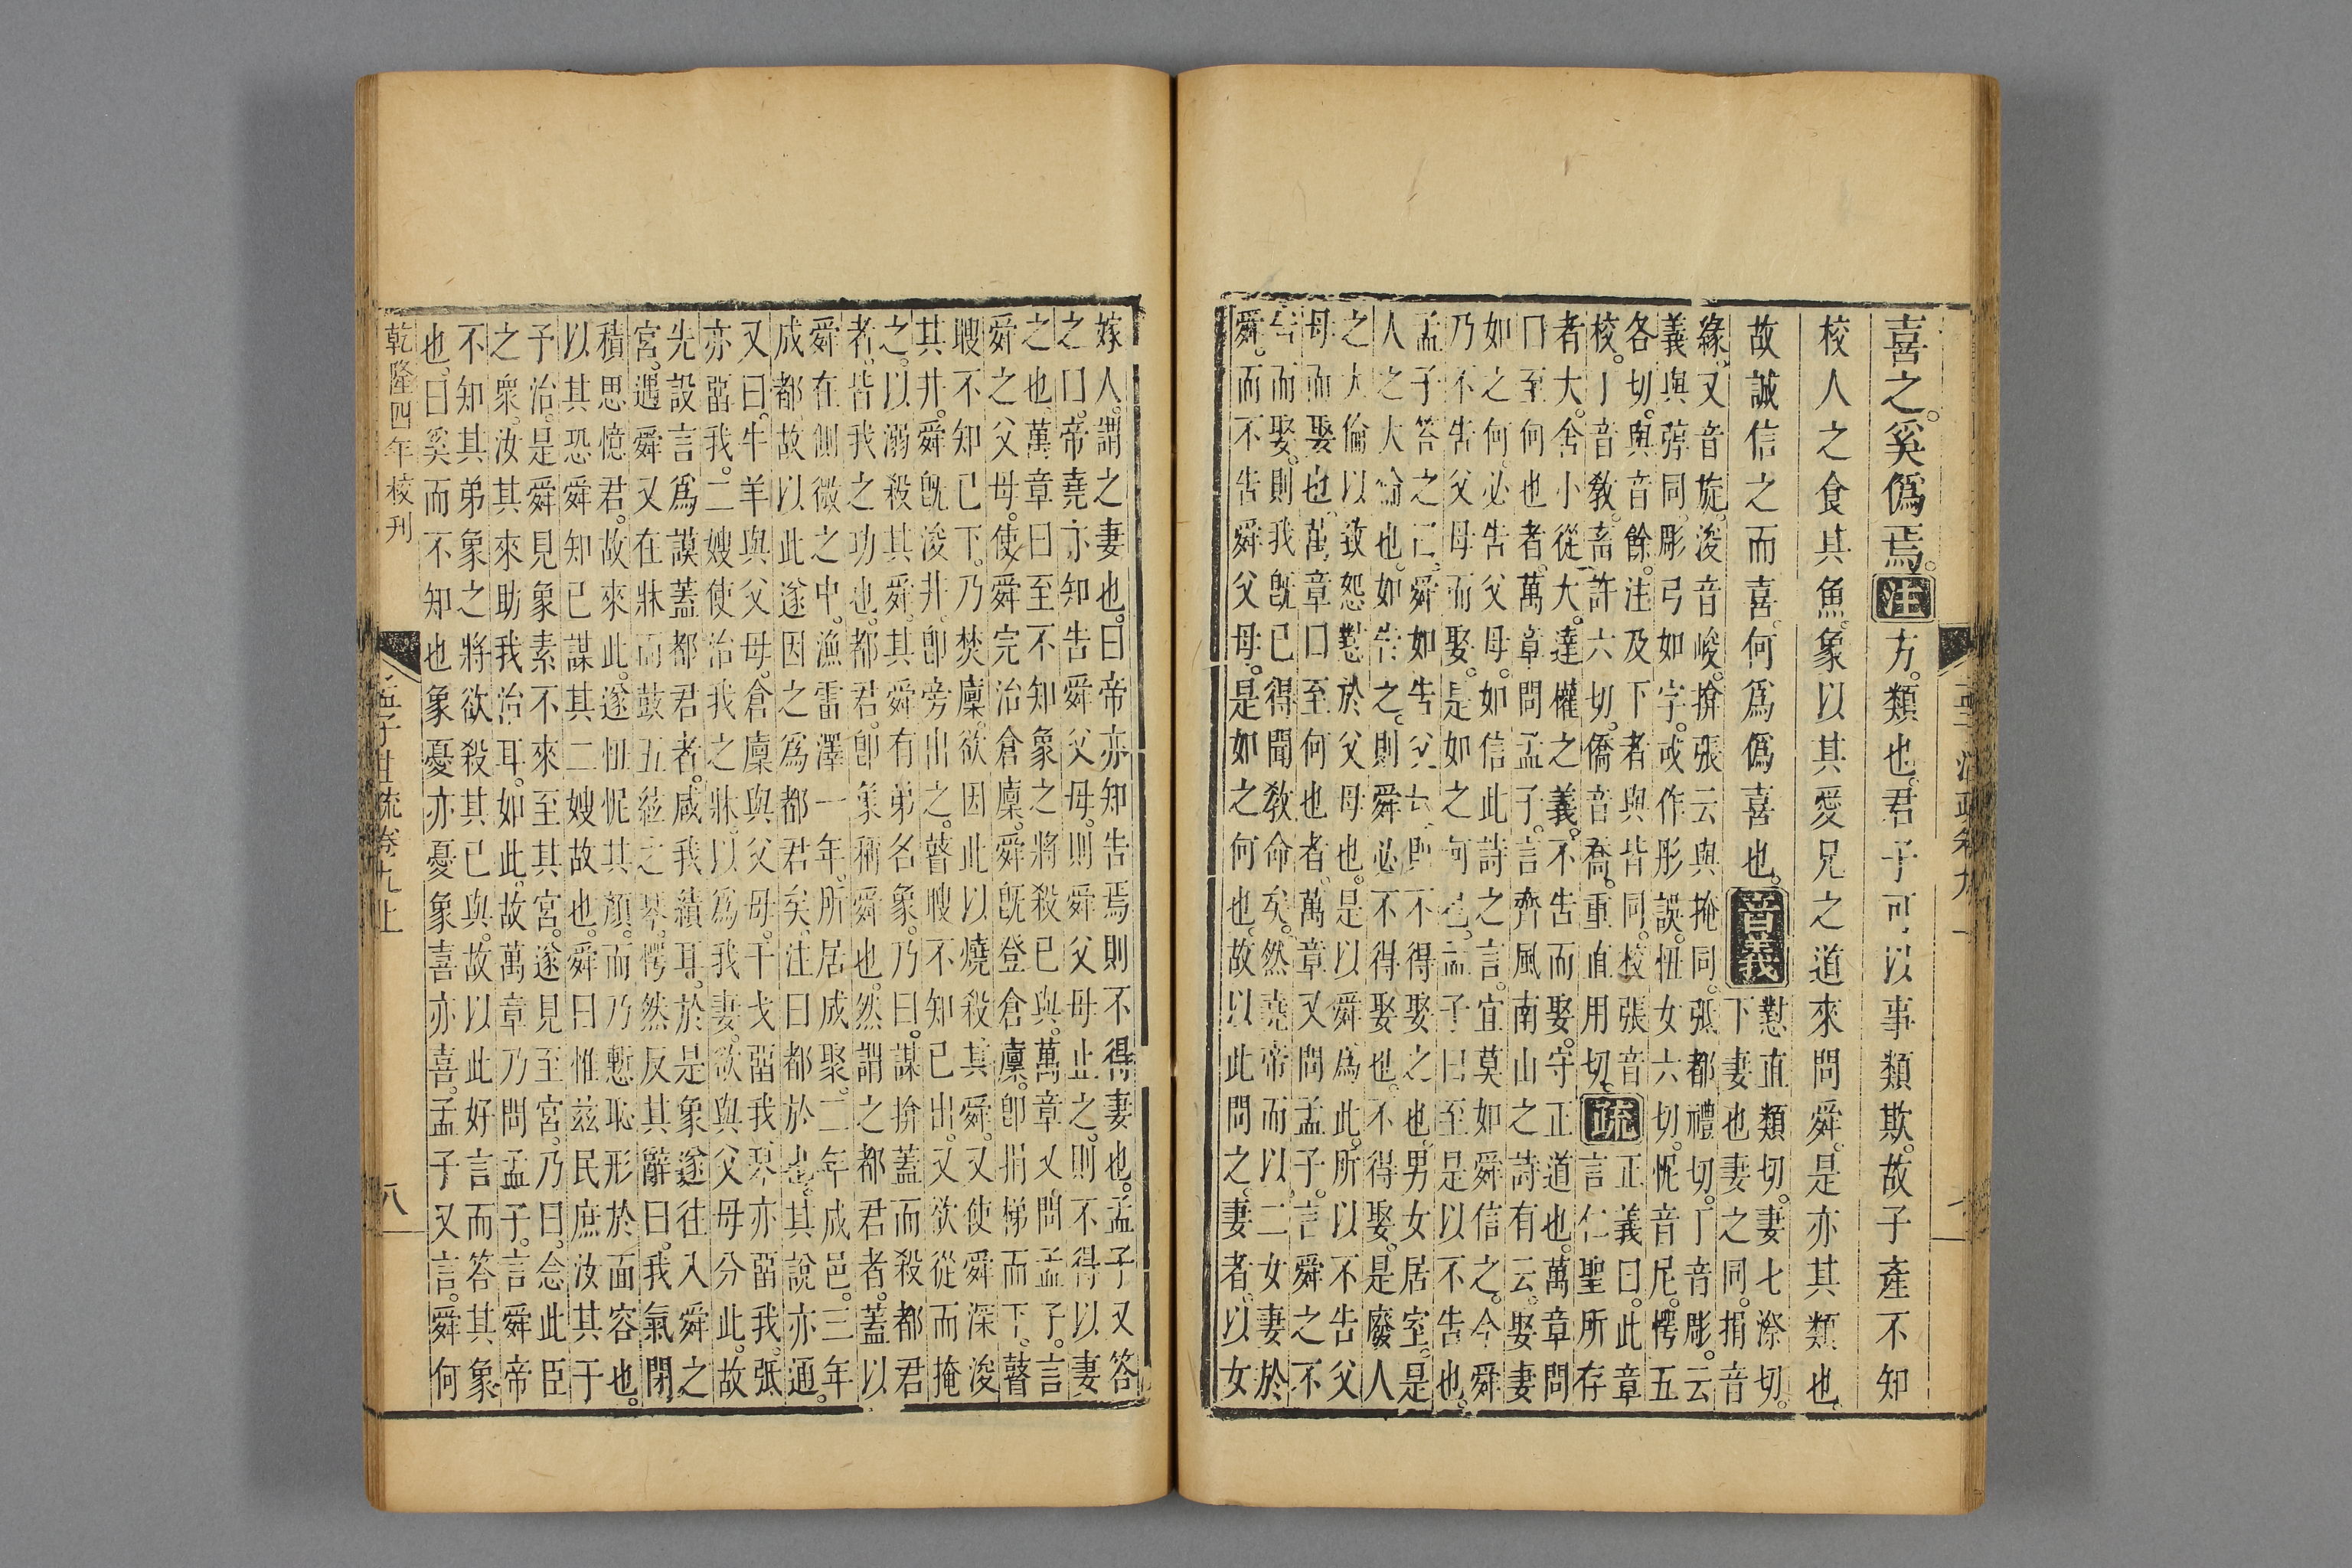 喜之。奚僞焉。注方。類也。君子可以事類欺。故子產不知
校人之食其魚。象以其愛兄之道來問舜。是亦其類也。
故誠信之而喜。何爲僞喜也。音義懟直類切。妻七漈切。
下妻也妻之同。捐音
緣。又音旋。浚音峻。揜張云與掩同。弤都禮切。丁音彫。云
義與弴同。彫弓如字。或作彤誤。忸女六切。怩音尼。愕五
各切。與音餘。注及下者與皆同。校張音
校。丁音教。畜許六切。僑音喬。重直用切。疏正義曰。此章
言仁聖所存
者大。舍小從大。達權之義。不告而娶。守正道也。萬章問
曰至何也者。萬章問孟子。言齊風南山之詩有云。娶妻
如之何。必告父母。如信此詩之言。宜莫如舜信之。今舜
乃不告父母而娶。是如之何也。孟子曰至是以不告也。
孟子答之曰。舜如告父母。則不得娶之也。男女居室。是
人之大倫也。如告之。則舜必不得娶也。不得娶。是廢人
之大倫以致怨懟於父母也。是以舜爲此。所以不告父
母而娶也。萬章曰至何也者。萬章又問孟子。言舜之不
告而娶。則我旣已得聞敎命矣。然堯帝而以二女妻於
舜。而不告舜父母。是如之何也。故以此問之。妻者。以女
嫁人。謂之妻也。曰帝亦知告焉則不得妻也。孟子又答
之曰。帝堯亦知告舜父母。則舜父母止之。則不得以妻
之也。萬章曰至不知象之將殺已與。萬章又問孟子。言
舜之父母。使舜完治倉廩。舜旣登倉廩。卽捐梯而下。瞽
瞍不知已下。乃焚廩。欲因此以燒殺其舜。又使舜深浚
其井。舜旣浚井。卽旁出之。瞽瞍不知已出。又欲從而掩
之。以溺殺其舜。其舜有弟名象。乃曰。謀揜蓋而殺都君
者。皆我之功也。都君。卽象稱舜也。然謂之都君者。蓋以
舜在側微之中。漁雷澤一年。所居成聚。二年成邑。三年
成都。故以此遂因之爲都君矣。注曰都於也。其說亦通。
又曰。牛羊與父母。倉廩與父母。干戈䛐我。琴亦䛐我。弤
亦䛐我。二嫂使治我之牀。以爲我妻。欲與父母分此。故
先設言爲謨蓋都君者。咸我績耳。於是象遂往入舜之
宮。遇舜又在牀而鼓五絃之琴。愕然反其辭曰。我氣閉
積思憶君。故來此。遂忸怩其顏。而乃慙恥形於面容也。
以其恐舜知已謀其二嫂故也。舜曰惟兹民庶汝其于
予治。是舜見象素不來至其宮。遂見至宮。乃曰。念此臣
之衆。汝其來助我治耳。如此。故萬章乃問孟子。言舜帝
不知其弟象之將欲殺其已與。故以此好言而答其象
也。曰奚而不知也象憂亦憂象喜亦喜。孟子又言。舜何
乾隆四年校刊
孟子注疏卷九上
八